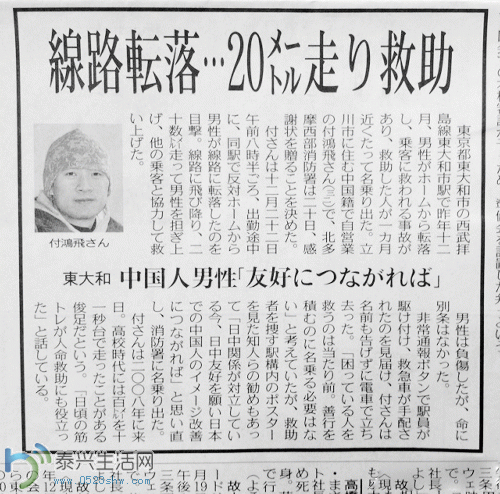 線路転落…20メートル走り救助
東京都東大和市の西武拝
島線東大和市駅で昨年十二
月、男性がホームから転落
し、乗客に救われる事故が
あり、救助した人が一カ月
近くたって名乗り出た。立
川市に住む中国籍で自営業
の付鴻飛さんで、北多
摩西部消防署は二十日、感
謝状を贈ることを決めた。
付さんは十二月二十二日
午前八時半ごろ、出勤途中
に、同駅で反対ホームから
男性が線路に転落したのを
目撃。線路に飛び降り、二
十数㍍走って男性を担ぎ上
げ、他の乗客と協力して救
い上げた。
付鴻飛さん
東大和 中国人男性「友好につながれば」
男性は負傷したが、命に
別条はなかった。
非常通報ボタンで駅員が
駆け付け、救急車が手配さ
れたのを見届け、付さんは
名前も告げずに電車で立ち
去った。「困っている人を
救うのは当たり前。善行を
積むのに名乗る必要はな
い」と考えていたが、救助
者を捜す駅構内のポスター
を見た知人らの勧めもあっ
て「日中関係が対立してい
る今、日中友好を願い日本
での中国人のイメージ改善
につながれば」と思い直
し、消防署に名乗り出た。
付さんは二〇〇八年に来
日。高校時代には百㍍を十
一秒台で走ったことがある
俊足だという。「日頃の筋
トレが人命救助にも役立っ
た」と話している。
泰兴生活网
www.0523shw.com